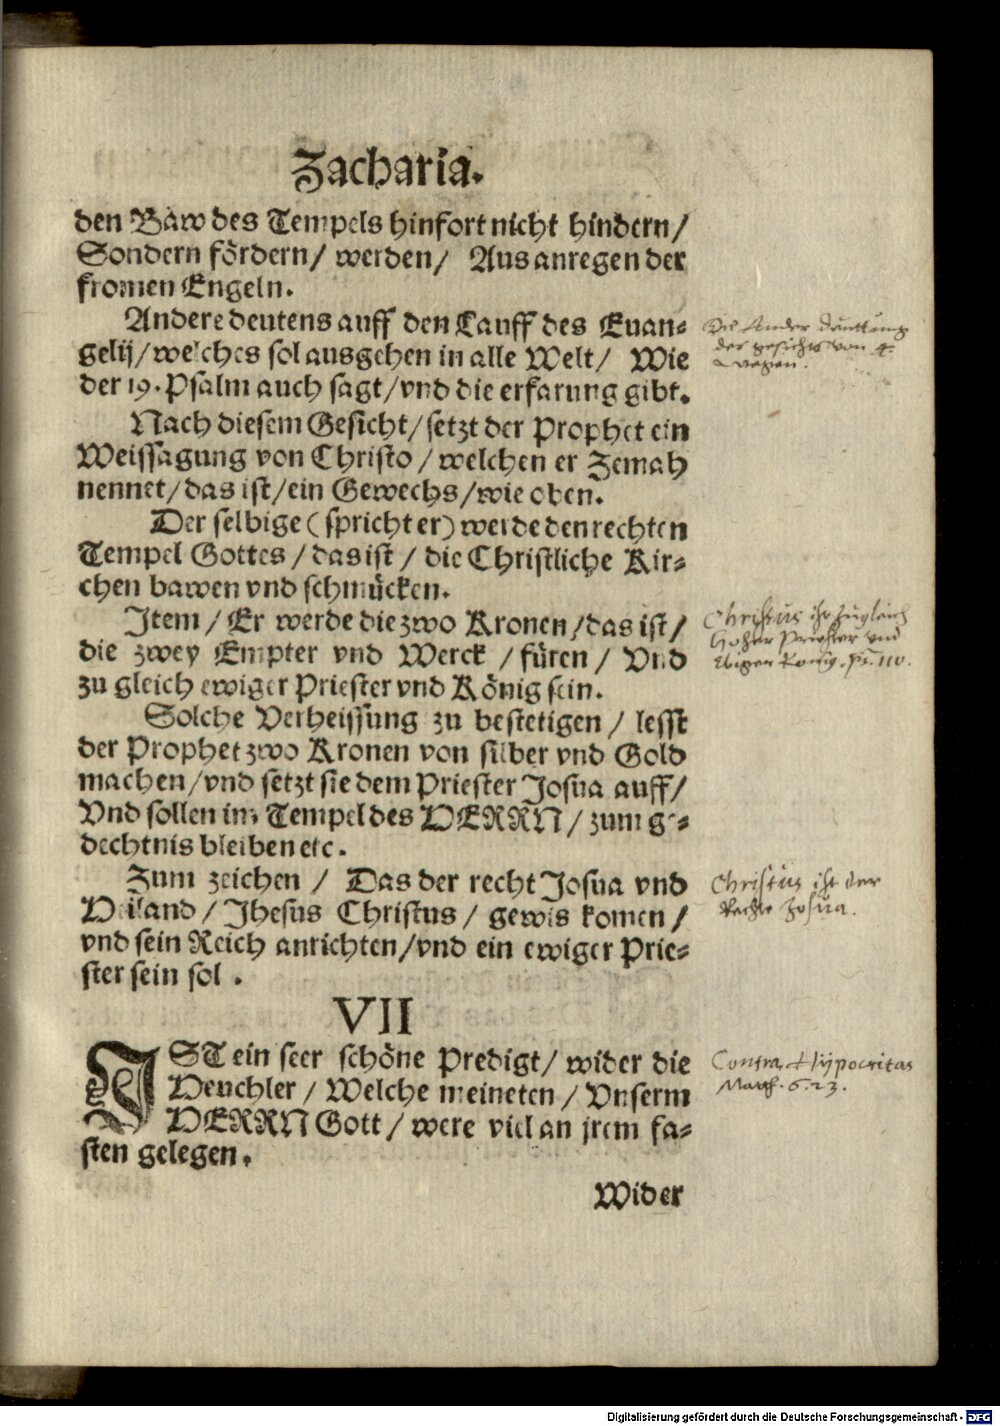 Zacharia.
den Baw des Tempels hinfort nicht hindern/
Sondern fördern/ werden/ Aus anregen der
fromen Engeln.
Andere deutens auff den Lauff des Euan-
gelij/welches sol ausgehen in alle Welt/ Wie
der 19. Psalm auch sagt/vnd die erfarung gibt.
Nach diesem Gesicht/setzt der Prophet ein
Weissagung von Christo/welchen er Zemah
nennet/das ist/ein Gewechs/wie oben.
Der selbige (spricht er) werde den rechten
Tempel Gottes/das ist/ die Christliche Kir-
chen bawen vnd schmücken.
Item/ Er werde die zwo Kronen/das ist/
die zwey Empter vnd Werck/füren/ Vnd
zu gleich ewiger Priester vnd König sein.
Solche Verheissung zu bestetigen/ lesst
der Prophet zwo Kronen von silber vnd Gold
machen/vnd setzt sie dem Priester Josua auff/
Vnd sollen im Tempel des HERRN/zum ge-
dechtnis bleiben etc.
Zum zeichen/ Das der recht Josua vnd
Heiland/Jhesus Christus/ gewis komen/
vnd sein Reich anrichten/vnd ein ewiger Prie-
ster sein sol.
VII
IST ein seer schöne Predigt/ wider die
Heuchler/Welche meineten/Vnserm
HERRN Gott/were viel an jrem fa-
sten gelegen.
Wider
Die Ander deuttung
der gesichts von 4.
Wegen.
Christus ist zugleich
Hoher Priester vnd
König. Ps. 110.
Christus ist der
Rechte Josua.
Contra Hypocritas
Matth. 6. 23.
Digitalisierung gefördert durch die Deutsche Forschungsgemeinschaft - DFG